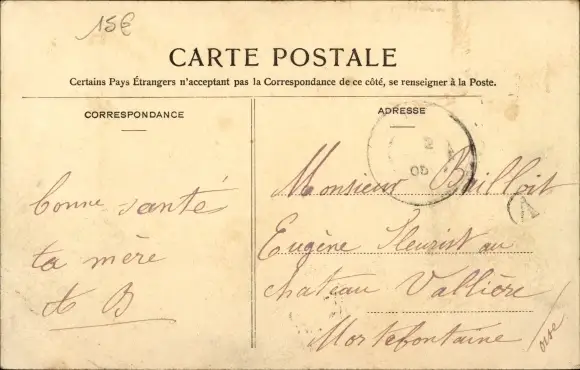 15€
CARTE POSTALE
Certains Pays Étrangers n'acceptant pas la Correspondance de ce côté, se renseigner à la Poste.
CORRESPONDANCE
ADRESSE
05
Monsieur
A
bonne santé
Eugène Fleurist au
ta mère
chateau Vallière
B
Mortefontaine
oise